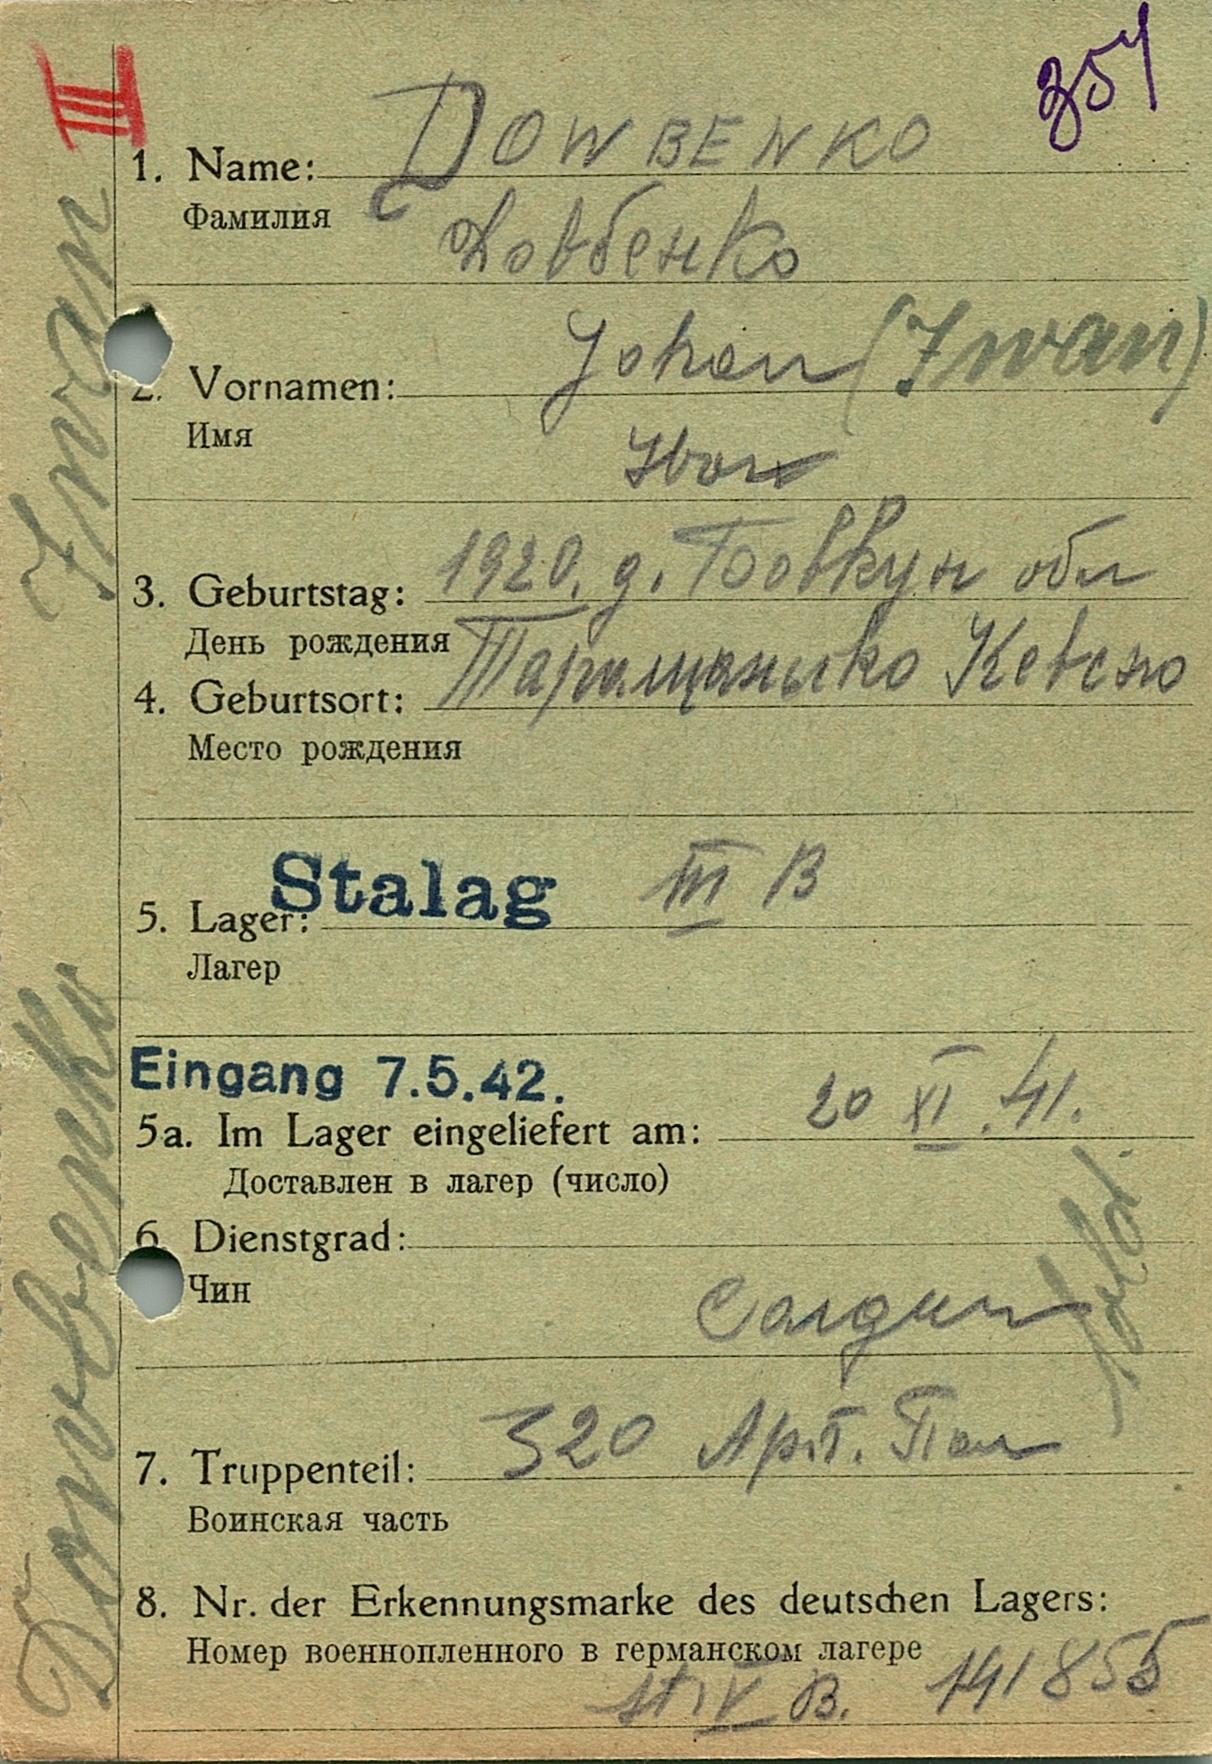 III
354
1. Name: DOWBENKO
Фамилия Довбенко
2. Vornamen: Johan (Iwan)
Имя Иван
3. Geburtstag: 1920. д. Бовкун обл
День рождения Таращанско Кевско
4. Geburtsort:
Место рождения
5. Lager: Stalag III B
Лагер
Eingang 7.5.42.
5a. Im Lager eingeliefert am: 20 XI. 41.
Доставлен в лагер (число)
6. Dienstgrad:
Чин Солдат
Sold.
7. Truppenteil: 320 Арт. Пол
Воинская часть
8. Nr. der Erkennungsmarke des deutschen Lagers:
Номер военнопленного в германском лагере 141855
St. IV B.
Dowbenko Iwan